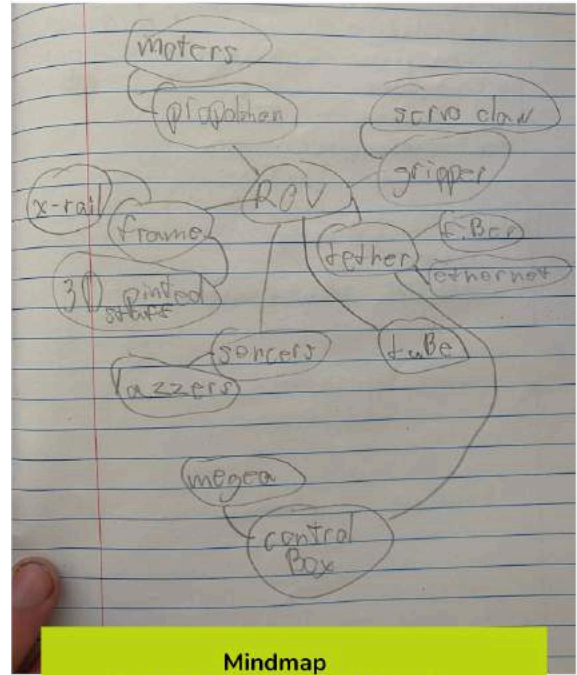 moters
propolshon
servo claw
gripper
ROV
x-rail
frame
tether
fiBer
ethernet
3D pinted
stuff
sencers
tuBe
lazzers
megea
control
Box
Mindmap